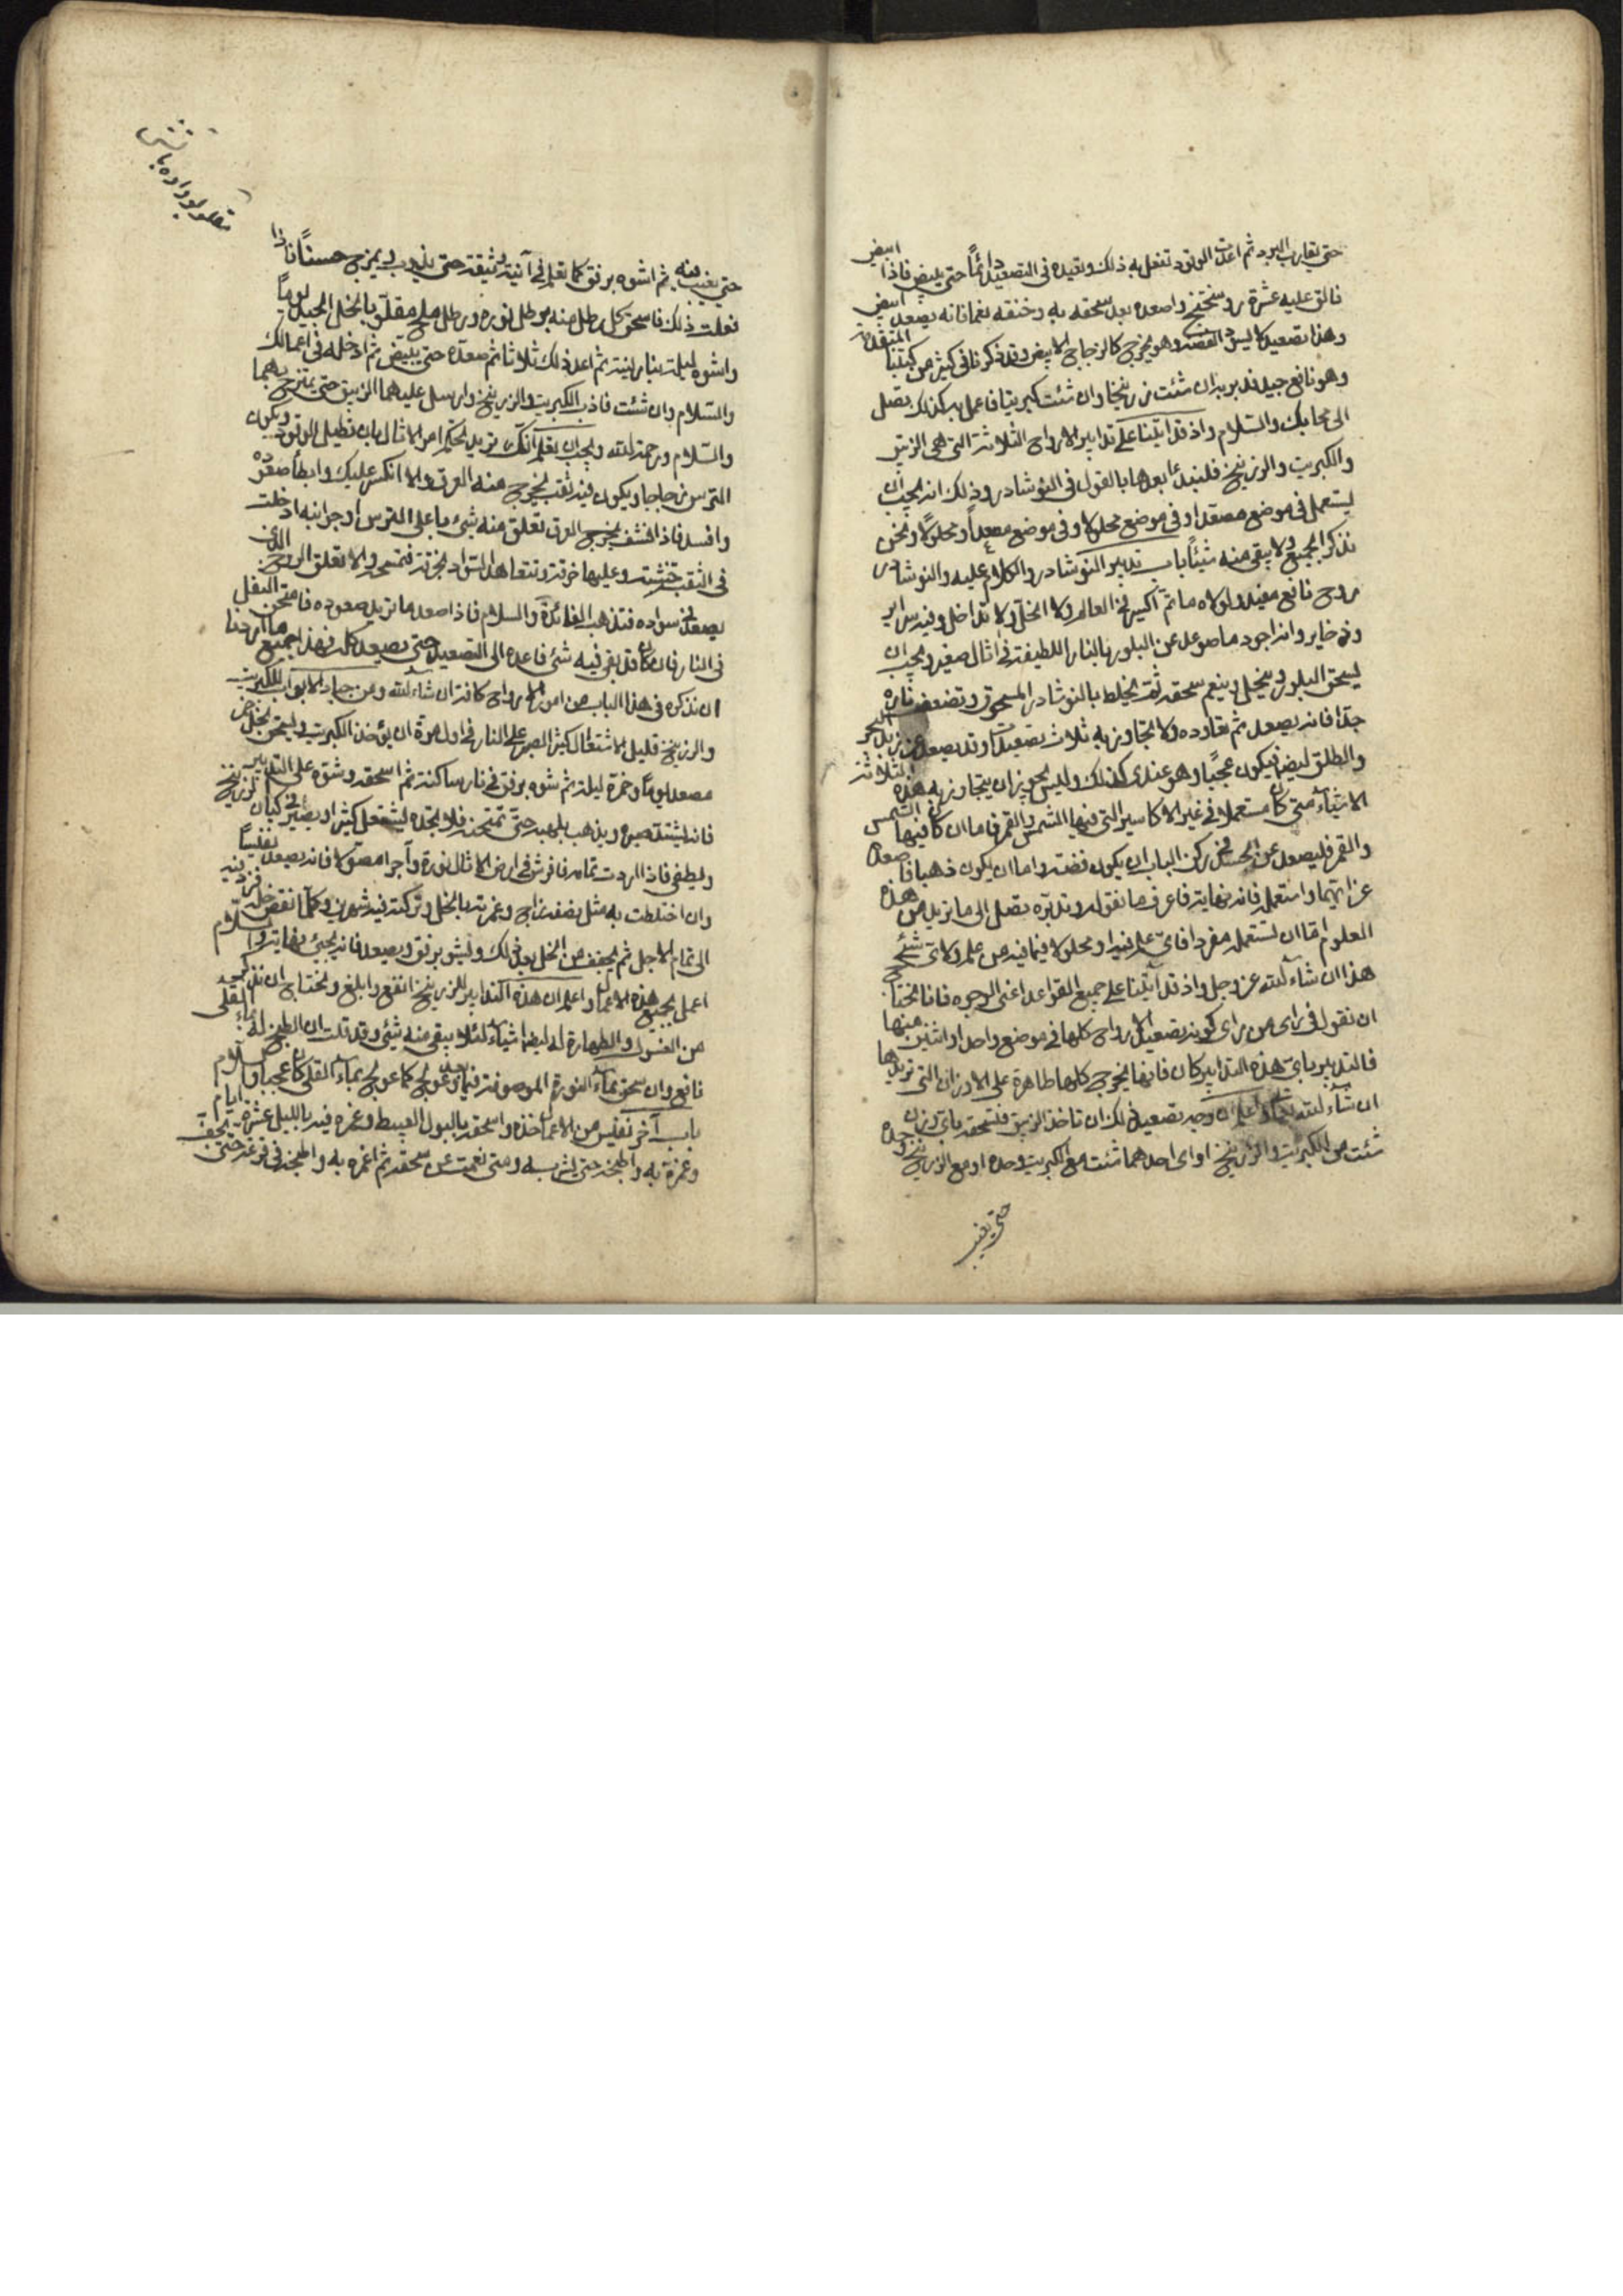 حتى يقارب البرد ثم اعدت الوقود تفعل به ذلك وتعيده فى التصعيد دائمًا حتى يبيض فاذا ابيض
فالق عليه عشرة روسختج واصعده بعد سحقه به وخنقه نعما فانه يصعد ابيض
وهذا تصعيد كالبيس الفضة وهو يخرج كالزجاج الابيض وقد ذكرنا فى كثير من كتبنا المتقدمة
وهو نافع جيد فدبر به ان شئت زرنيخا وان شئت كبريتا فاعمل به كذلك تصل
الى محابك والسلام واذ قد اتينا على تدابير الارواح الثلاثة التى هى الزيبق
والكبريت والزرنيخ فلنبدء بعدها بالقول فى النوشادر وذلك انه يجب ان
يستعمل فى موضع مصعدا وفى موضع محلولا وفى موضع مصعداً ومحلولًا ونحن
نذكر الجميع ولا يبقى منه شيئًا باب تدبير النوشادر والكلام عليه والنوشادر
روح نافع مفيد ولولاه ما تم اكسير فى العالم ولا انحل ولا تداخل وفيه سراير
وذخاير وانه اجود ما صوعد عن البلور بالنار اللطيفة فى اثال صغير ويجب ان
يسحق البلور وينخل وينعم سحقه ثم يخلط بالنوشادر المسحوق وتضعف ناره
جدًا فانه يصعد ثم تعاوده ولا تتجاوز به ثلاث تصعيدات وقد يصعد عن زبد البحر
والطلق ايضا فيكون عجيبًا وهو عندى كذلك وليس يجوز ان يتجاوز به هذه الثلاثة
الاشياء متى كان مستعملا فى غير الاكاسير التى فيها الشمس والقمر فاما ان كان فيها الشمس
والقمر فليصعد عن الجسد فى ركن الباب ان يكون فضة واما ان يكون ذهبا فاصعده
عن ايهما واستعمله فانه نهاية فاعرف ما نقوله وتدبره تصل الى ما تريد من هذه
العلوم اما ان تستعمل مفردا فاى علم فيه او محلولا فيما فيه من علم ولاى شئ
هذا ان شاء الله عز وجل واذ قد اتينا على جميع القواعد اعنى الوجوه فانا نحتاج
ان نقول فى راى من راى كونه تصعيد الارواح كلها فى موضع واحد او اثنين منها
فالتدبير باى هذه التدابير كان فانها يخرج كلها طاهرة على الاوزان التى تريدها
ان شاء الله تعالى واعلم ان وجه تصعيد ذلك ان تاخذ الزيبق فتسحقه باى وزن
شئت من الكبريت والزرنيخ او اى احدهما شئت مع الكبريت وحده او مع الزرنيخ وحده
حتى يغيب
حتى يغيب منه ثم اشوه برفق كما تعلم فى آنية وثيقة حتى يذوب ويمزج حسنًا فاذا
فعلت ذلك فاسحق كل رطل منه برطل نوره ورطل ملح مقلو بالخل الجيد يوماً
واشوه ليلة بنار لينة ثم اعد ذلك ثلاثا ثم صعده حتى يبيض ثم ادخله فى اعمالك
والسلام وان شئت فاذب الكبريت والزرنيخ وارسل عليهما الزيبق حتى يمتزج بهما
والسلام ورحمة الله ويجب ان تعلم انك تريد تحكم امر الاثال بان تطيل الوقود ويكون
الترس زجاجا ويكون فيه ثقب ليخرج منه العرق والا انكسر عليك وابطأ صعوده
وافسد فاذا نشف بخروج العرق تعلق منه شئ باعلى الترس او جوانبه ادخلت
فى الثقب خشبة وعليها خرقة وتتعاهد السواد بخرقة فتمسح والا تعلق الروح الذى
يصعد فى سواده فتذهب الفائدة والسلام فاذا صعد ما تريد صعوده فامتحن الثفل
فى النار فان كان قد بقى فيه شئ فاعده الى التصعيد حتى يصعد كله فهذا جميع ما اردنا
ان نذكره فى هذا الباب من امر الارواح كافة ان شاء الله ومن جياد الابواب للكبريت
والزرنيخ قليل الاشتعال كثير الصبر على النار فى اول مرة ان يؤخذ الكبريت ويسحق بخل خمر
مصعد يومًا وخمرة ليلة ثم شوه برفق فى نار ساكنة ثم اسحقه وشوه على التدبير
فانه يشتد صبره ويذهب بلهبه حتى تمتحنه فلا تجده يشتعل كثيرا ويصير فى كيان الزرنيخ
ويطفى فاذا اردت تمامه فافرش فى ارض الاثال نورة وآجرا مصولا فانه يصعد نفيسًا
وان اختلطت به مثل نصفه زاج وغمرته بالخل وتركته فيه شهرين وكلما نقص خله فزد فيه
الى تمام الاجل ثم يجفف من الخل بعد ذلك ويشوى برفق ويصعد فانه يجئ نهاية والسلام
اعمل بجميع هذه الاعمال واعلم ان هذه التدابير للزرنيخ انفع وابلغ ونحتاج ان نذكر
من الغسول والطهارة له ايضا اشياء لئلا يبقى منه شئ وقد قلت ان الطبخ له بماء القلى
نافع وان سحق بماء النورة الموصوفة فيما عولج كما عولج بماء القلى كان عجيبا والسلام
باب آخر نفيس من الاعمال خذه واسحقه بالبول العبيط وغمره فيه بالليل عشرة ايام
وغمرة به واطبخه حتى يشربه ومتى نعمت من سحقه ثم اغمره به واطبخه فى قرعة حتى يجف